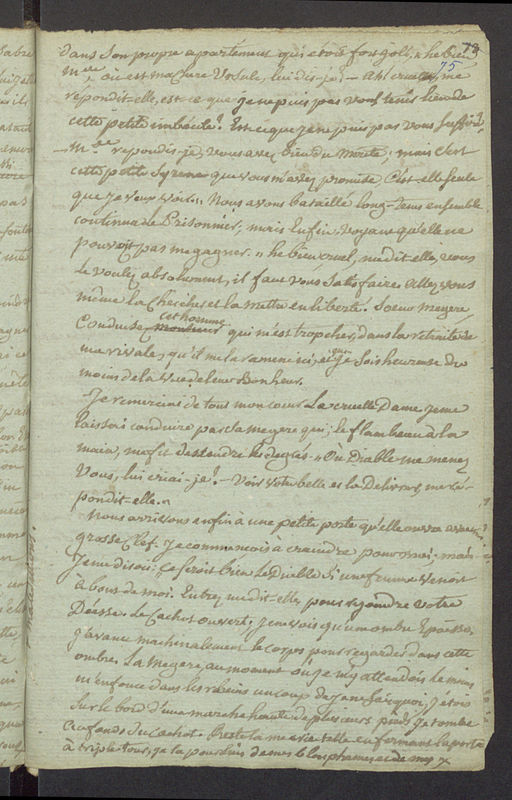 73
75
dans son propre apartement qui etoit fort joli, he bien
Mme, ou est ma chere Ursule, lui dis-je? — Ah! cruel, me
répondit-elle, est-ce que je ne puis pas vous tenir lieu de
cette petite imbécile? Est-ce que je ne puis pas vous suffire?
— Mme repondis-je, vous avez bien du mérite; mais c'est
cette petite Syrene que vous m'avez promise. C'est elle seule
que je veux voir. Nous avons bataillé long-tems ensemble
continua le Prisonnier, mais enfin, voyant qu'elle ne
pouvoit pas me gagner. " he bien cruel, me dit-elle, vous
le voulez absolument, il faut vous satisfaire. Allez vous
même la chercher et la mettre en liberté. Soeur megere
cet homme
Conduisez monsieur qui m'est trop cher, dans la retraite de
ma rivale, qu'il me la ramene ici, et que je sois heureuse du
moins de la vue de leur Bonheur.
Je remerciai de tout mon coeur la cruelle Dame, je me
laissai conduire par la megere qui, le flambeau à la
main, me fit dessendre les degrés. " Ou Diable me menez
vous, lui criai-je? — Voir votre belle et la Delivrer, me ré-
pondit-elle. "
Nous arrivons enfin à une petite porte qu'elle ouvre avec une
grosse clef. Je commencois à craindre pour moi; mais
je me disois: " ce seroit bien le Diable si une femme venoit
à bout de moi. Entrez, me dit-elle, pour rejoindre votre
Déesse. le Cachot ouvert, je ne vois qu'une ombre Epaisse,
j'avance machinalement le corps pour regarder dans cette
ombre. La megere, au moment où je m'y attendois le moins
m'enfonce dans les reins un coup de je ne sais quoi. J'étois
sur le bord d'une marche haute de plusieurs pieds, je tombe
au fond du Cachot. Reste là me crie-t-elle en fermant la porte
à triple tour, je la poursuis de mes blasphemes et de mes